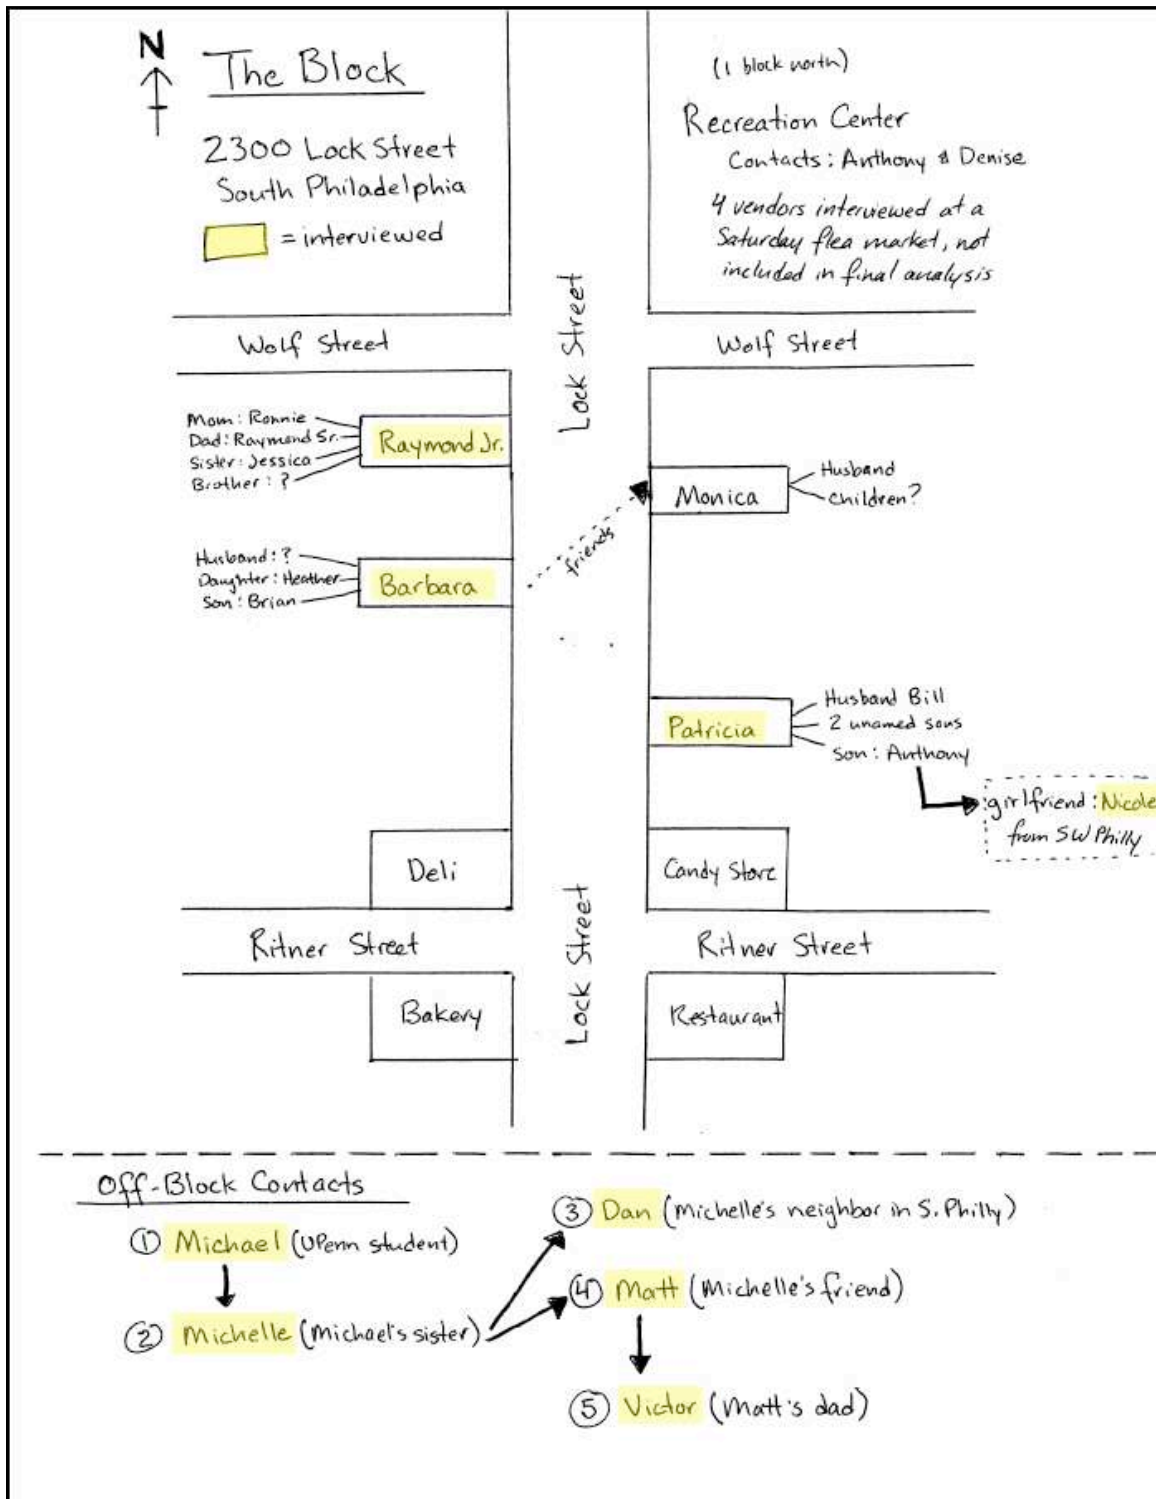 N
The Block
2300 Lock Street
South Philadelphia
= interviewed
(1 block north)
Recreation Center
Contacts: Anthony & Denise
4 vendors interviewed at a
Saturday flea market, not
included in final analysis
Lock Street
Wolf Street
Wolf Street
Mom: Ronnie
Dad: Raymond Sr.
Sister: Jessica
Brother: ?
Raymond Jr.
Monica
Husband
children?
friends
Husband: ?
Daughter: Heather
Son: Brian
Barbara
Patricia
Husband Bill
2 unamed sons
son: Anthony
girlfriend: Nicole
from SW Philly
Deli
Candy Store
Ritner Street
Lock Street
Ritner Street
Bakery
Restaurant
Off-Block Contacts
1 Michael (UPenn student)
2 Michelle (Michael's sister)
3 Dan (Michelle's neighbor in S. Philly)
4 Matt (Michelle's friend)
5 Victor (Matt's dad)